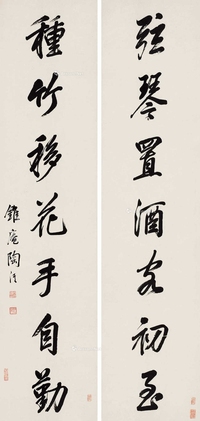 弦琴置酒客初至
種竹移花手自勤
錐庵陶澍